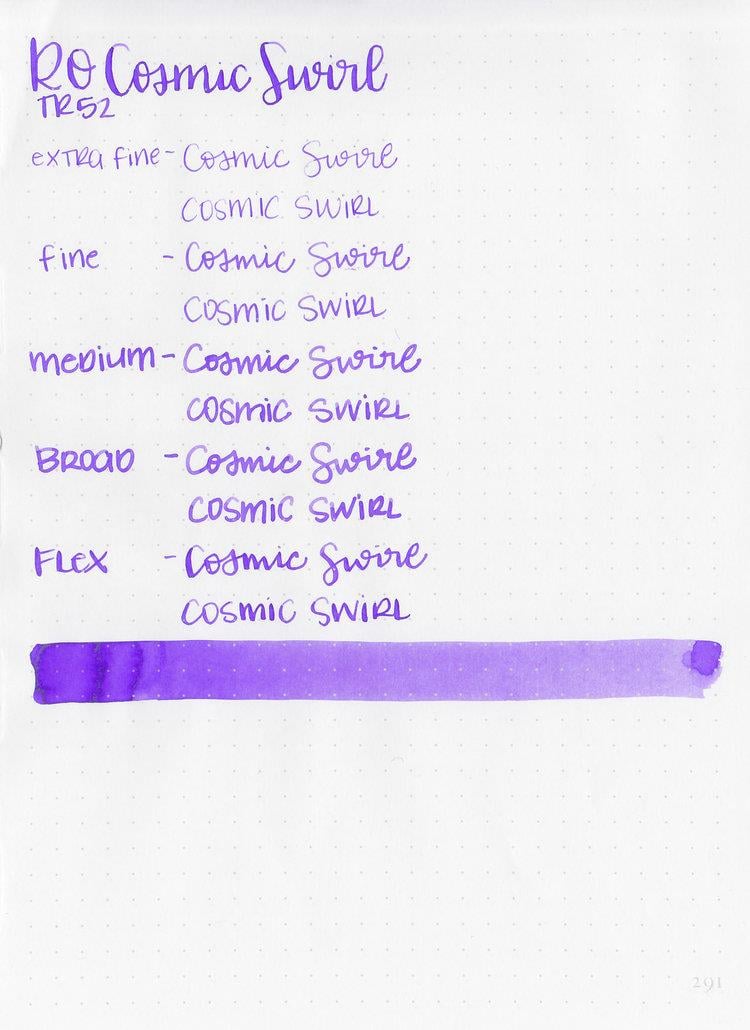 RO Cosmic Swirl
TR52
extra fine - Cosmic Swirl
COSMIC SWIRL
fine - Cosmic Swirl
COSMIC SWIRL
medium - Cosmic Swirl
COSMIC SWIRL
BROAD - Cosmic Swirl
COSMIC SWIRL
FLEX - Cosmic Swirl
COSMIC SWIRL
291